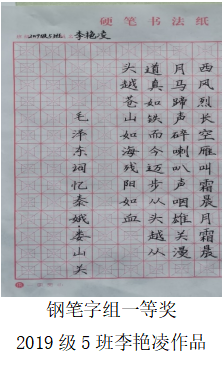 硬笔书法纸
2019级5班 李艳凌
西风烈长空雁叫霜晨月霜晨
月马蹄声碎喇叭声咽雄关漫
道真如铁而今迈步从头越从
头越苍山如海残阳如血
毛泽东词忆秦娥娄山关
钢笔字组一等奖
2019级5班李艳凌作品